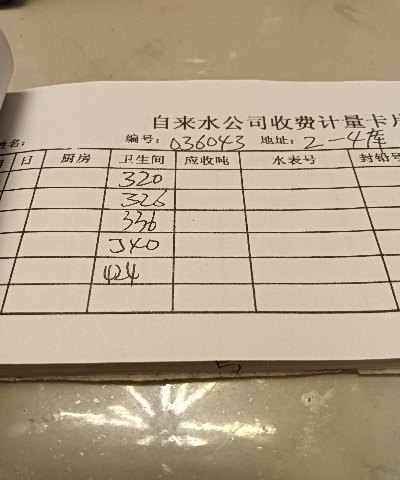 自来水公司收费计量卡片
姓名： 编号：036043 地址：2-4库
月 日 厨房 卫生间 应收吨 水表号 封铅号
320
326
336
340
424
5